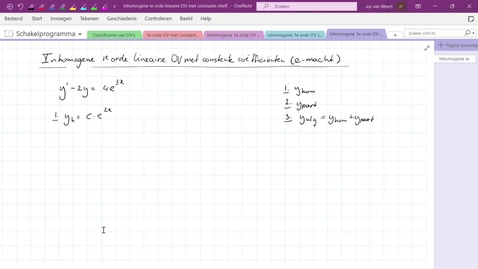 Inhomogene 1e orde lineaire DV met constante coeff - OneNote
Jos van Weert
Bestand Start Invoegen Tekenen Geschiedenis Controleren Beeld Help
Schakelprogramma
Classificeren van DV's
1e orde DV met constante...
Inhomogene 1e orde DV ...
Inhomogene 1e orde DV ...
Zoeken (Ctrl+E)
Pagina toevoegen
Inhomogene 1e orde lineaire DV met constante coëfficiënten (e-macht)
Inhomogene ie
y' - 2y = 4e^{3x}
1. y_h = c · e^{2x}
1. y_hom
2. y_part
3. y_alg = y_hom + y_part